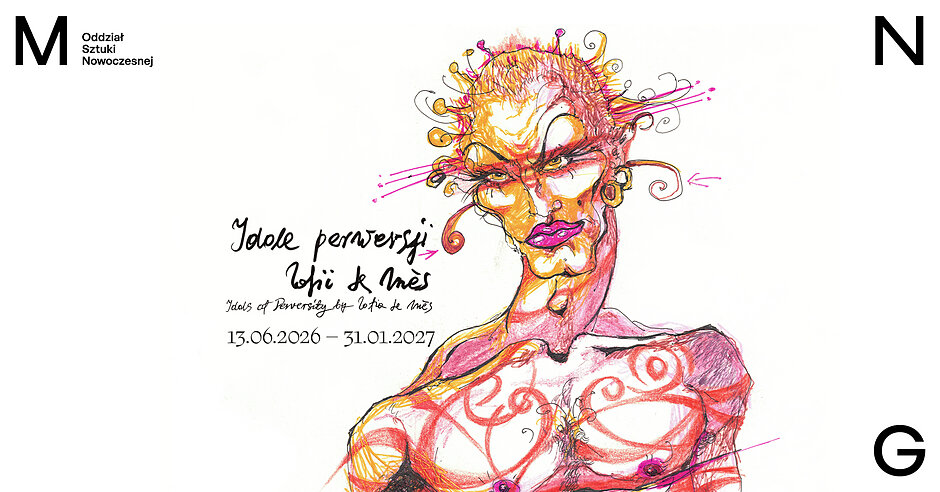 M
Oddział
Sztuki
Nowoczesnej
N
Idole perwersji
Zofii de Inès
Idols of Perversity by Zofia de Inès
13.06.2026 – 31.01.2027
G